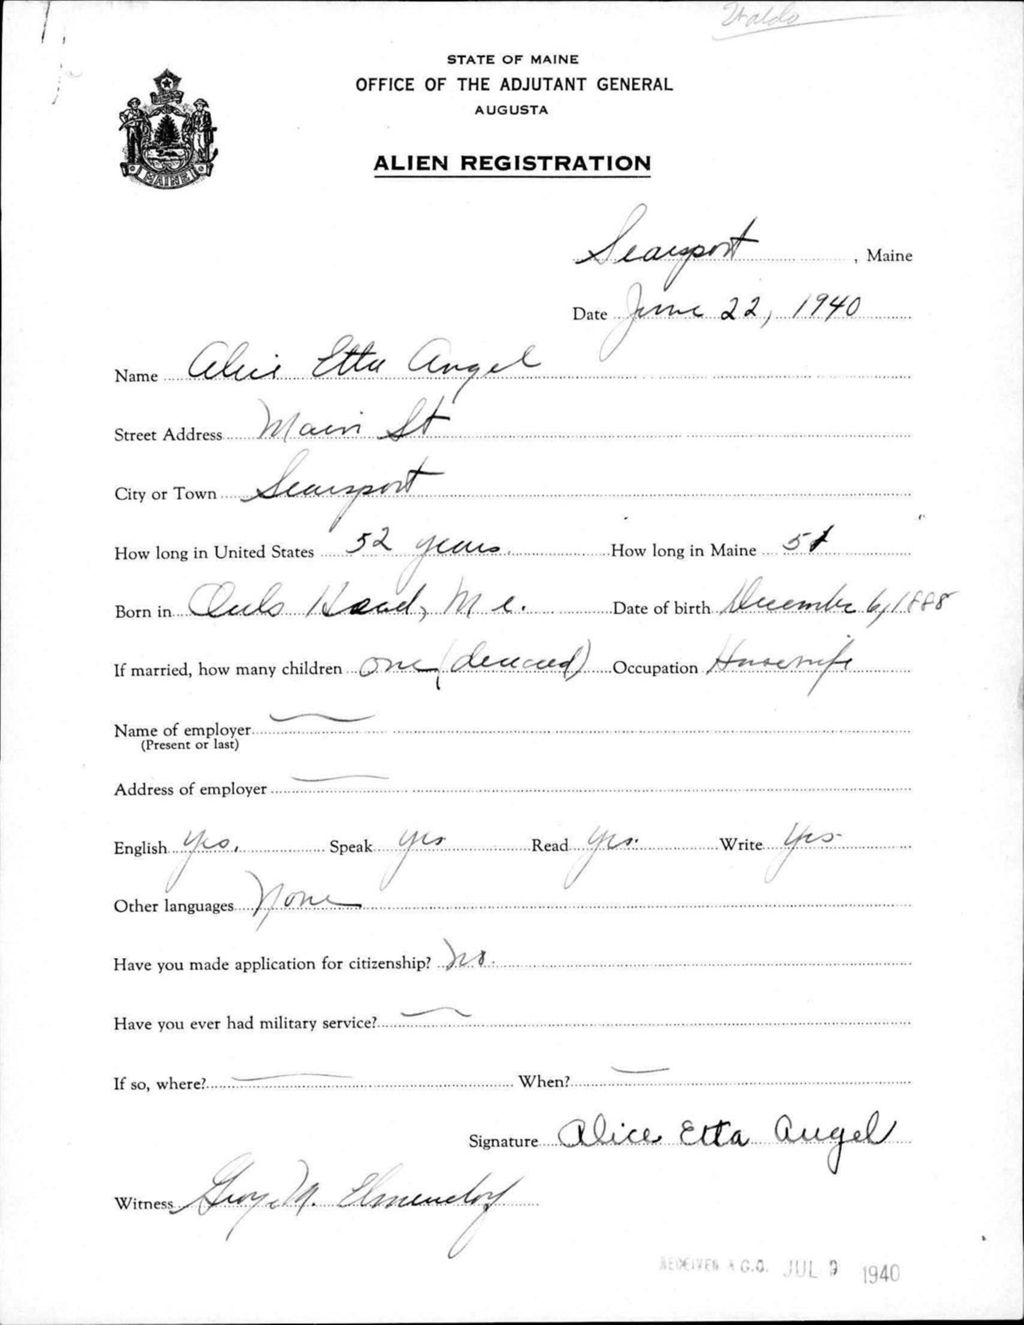 Waldo
STATE OF MAINE
OFFICE OF THE ADJUTANT GENERAL
AUGUSTA
MAINE
ALIEN REGISTRATION
Searsport, Maine
Date June 22, 1940
Name Alice Etta Angel
Street Address Main St
City or Town Searsport
How long in United States 52 years How long in Maine 51
Born in Owls Head, Me. Date of birth December 6, 1888
If married, how many children one (deceased) Occupation Housewife
Name of employer
(Present or last)
Address of employer
English yes. Speak yes Read yes. Write yes
Other languages None
Have you made application for citizenship? no.
Have you ever had military service?
If so, where? When?
Signature Alice Etta Angel
Witness George M. Elmendorf
RECEIVED A.G.O. JUL 9 1940